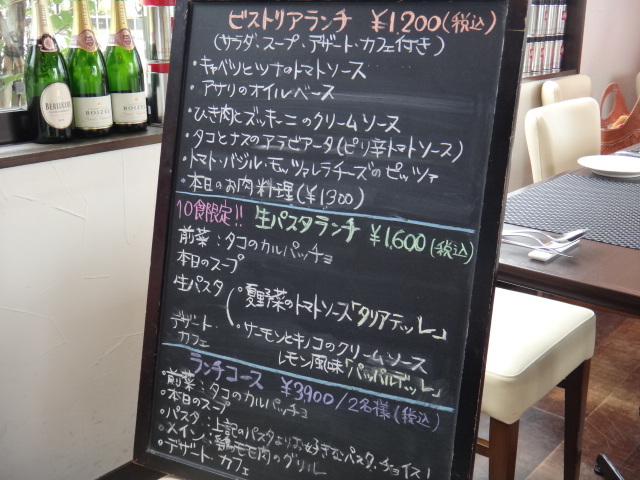 ビストリアランチ ¥1,200(税込)
(サラダ・スープ・デザート・カフェ付き)
・キャベツとツナのトマトソース
・アサリのオイルベース
・ひき肉とズッキーニのクリームソース
・タコとナスのアラビアータ(ピリ辛トマトソース)
・トマト・バジル・モッツァレラチーズのピッツァ
・本日のお肉料理(¥1300)
10食限定!! 生パスタランチ ¥1,600(税込)
前菜:タコのカルパッチョ
本日のスープ
生パスタ(・夏野菜のトマトソース「タリアテッレ」
・サーモンとキノコのクリームソース
レモン風味「パッパルデッレ」
デザート・
カフェ
ランチコース ¥3900/2名様(税込)
・前菜:タコのカルパッチョ
・本日のスープ
・パスタ:上記のパスタよりお好きなパスタ、チョイス!
・メイン:鶏モモ肉のグリル
・デザート・カフェ